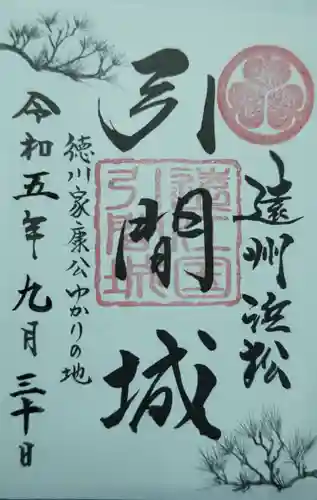 遠州浜松
引間城
徳川家康公ゆかりの地
令和五年九月三十日
遠江国
引間城